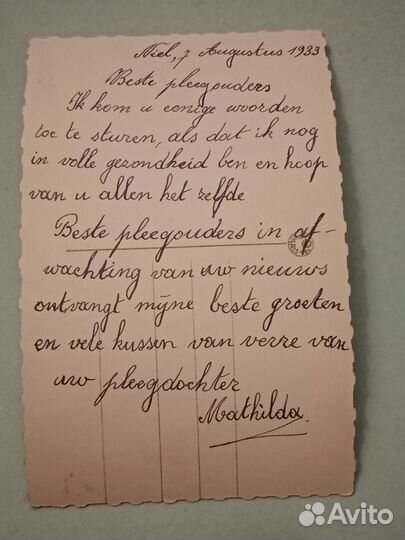 Niel, 7 Augustus 1933
Beste pleegouders
Ik kom u eenige woorden
toe te sturen, als dat ik nog
in volle gezondheid ben en hoop
van u allen het zelfde
Beste pleegouders in af-
wachting van uw nieuws
ontvangt mijne beste groeten
en vele kussen van verre van
uw pleegdochter
Mathilda.
Avito